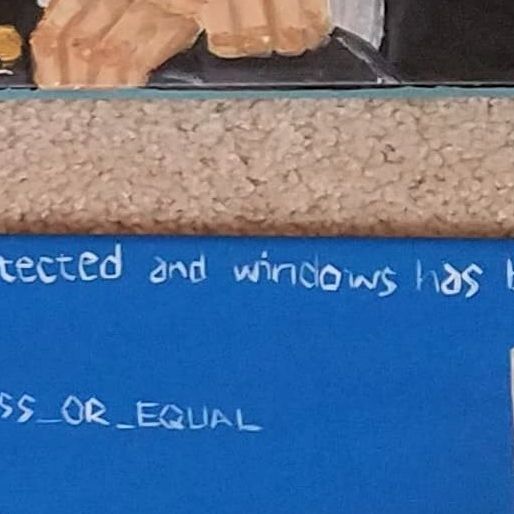 tected and windows has b
SS_OR_EQUAL